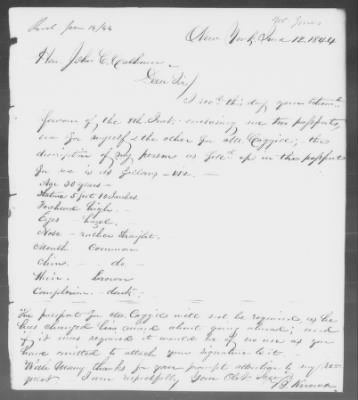 New York, June 12. 1844
Hon John C. Calhoun
Dear Sir
I recd this day yours
favour of the 8th Inst. enclosing me two passports,
one for myself & the other for Mr Coggill; the
description of my person as filled up in this passport
for me is as follows - viz -
Age 30 years -
Stature 5 feet 10 inches
Forehead high -
Eyes - hazel -
Nose - rather straight -
Mouth Common
Chin - do -
Hair - brown
Complexion - dark;
The passport for Mr Coggill will not be required, as he
has changed his mind about going abroad; and
if it was required it would be of no use as you
have omitted to attach your signature to it.
With many thanks for your prompt attention to my
quest I am respectfully Your Obt